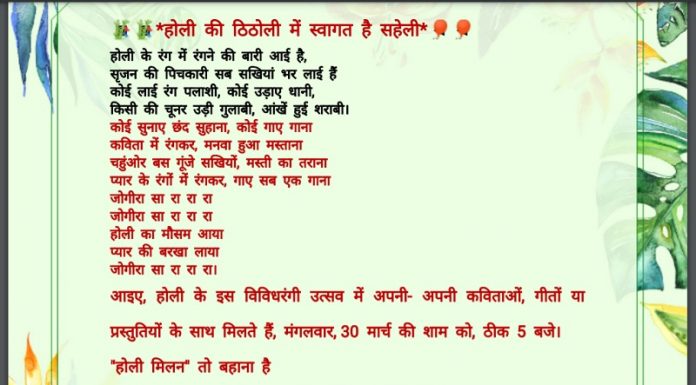 *होली की ठिठोली में स्वागत है सहेली*
होली के रंग में रंगने की बारी आई है,
सृजन की पिचकारी सब सखियां भर लाई हैं
कोई लाई रंग पलाशी, कोई उड़ाए धानी,
किसी की चूनर उड़ी गुलाबी, आंखें हुई शराबी।
कोई सुनाए छंद सुहाना, कोई गाए गाना
कविता में रंगकर, मनवा हुआ मस्ताना
चहुंओर बस गूंजे सखियों, मस्ती का तराना
प्यार के रंगों में रंगकर, गाए सब एक गाना
जोगीरा सा रा रा रा
जोगीरा सा रा रा रा
होली का मौसम आया
प्यार की बरखा लाया
जोगीरा सा रा रा रा।
आइए, होली के इस विविधरंगी उत्सव में अपनी- अपनी कविताओं, गीतों या
प्रस्तुतियों के साथ मिलते हैं, मंगलवार, 30 मार्च की शाम को, ठीक 5 बजे।
"होली मिलन" तो बहाना है